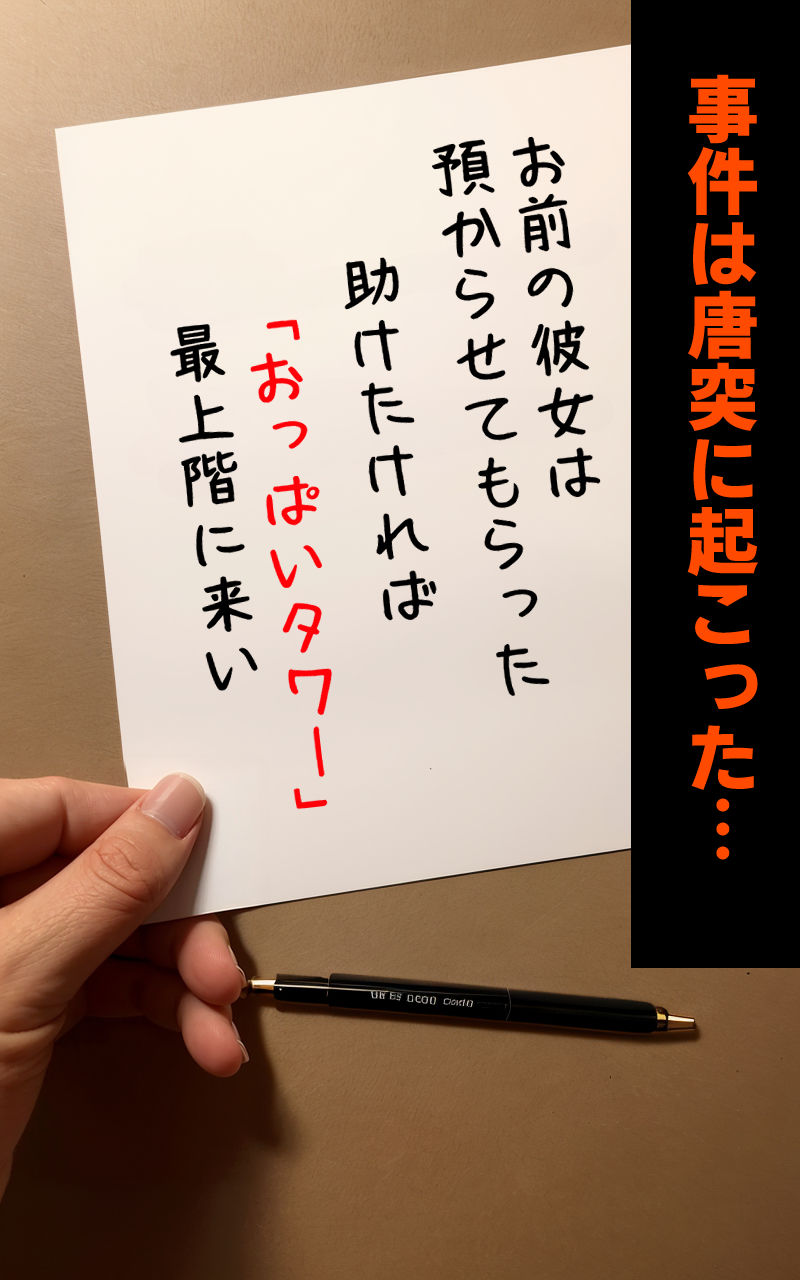 事件は唐突に起こった…
お前の彼女は
預からせてもらった
助けたければ
「おっぱいタワー」
最上階に来い